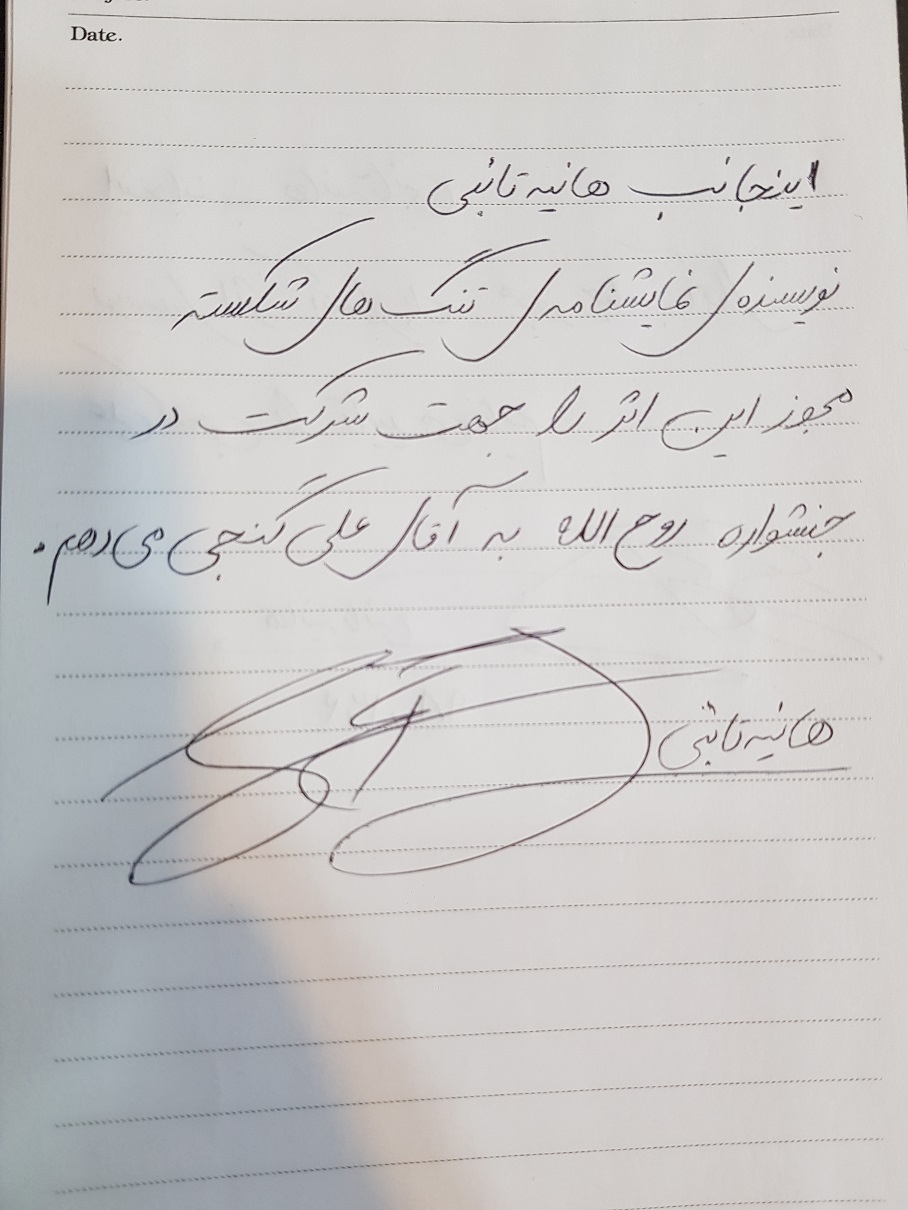 Date.
اینجانب هانیه تائبی
نویسنده‌ی نمایشنامه‌ی تنگ های شکسته
مجوز این اثر را جهت شرکت در
جشنواره روح الله به آقای علی گنجی می دهم.
هانیه تائبی